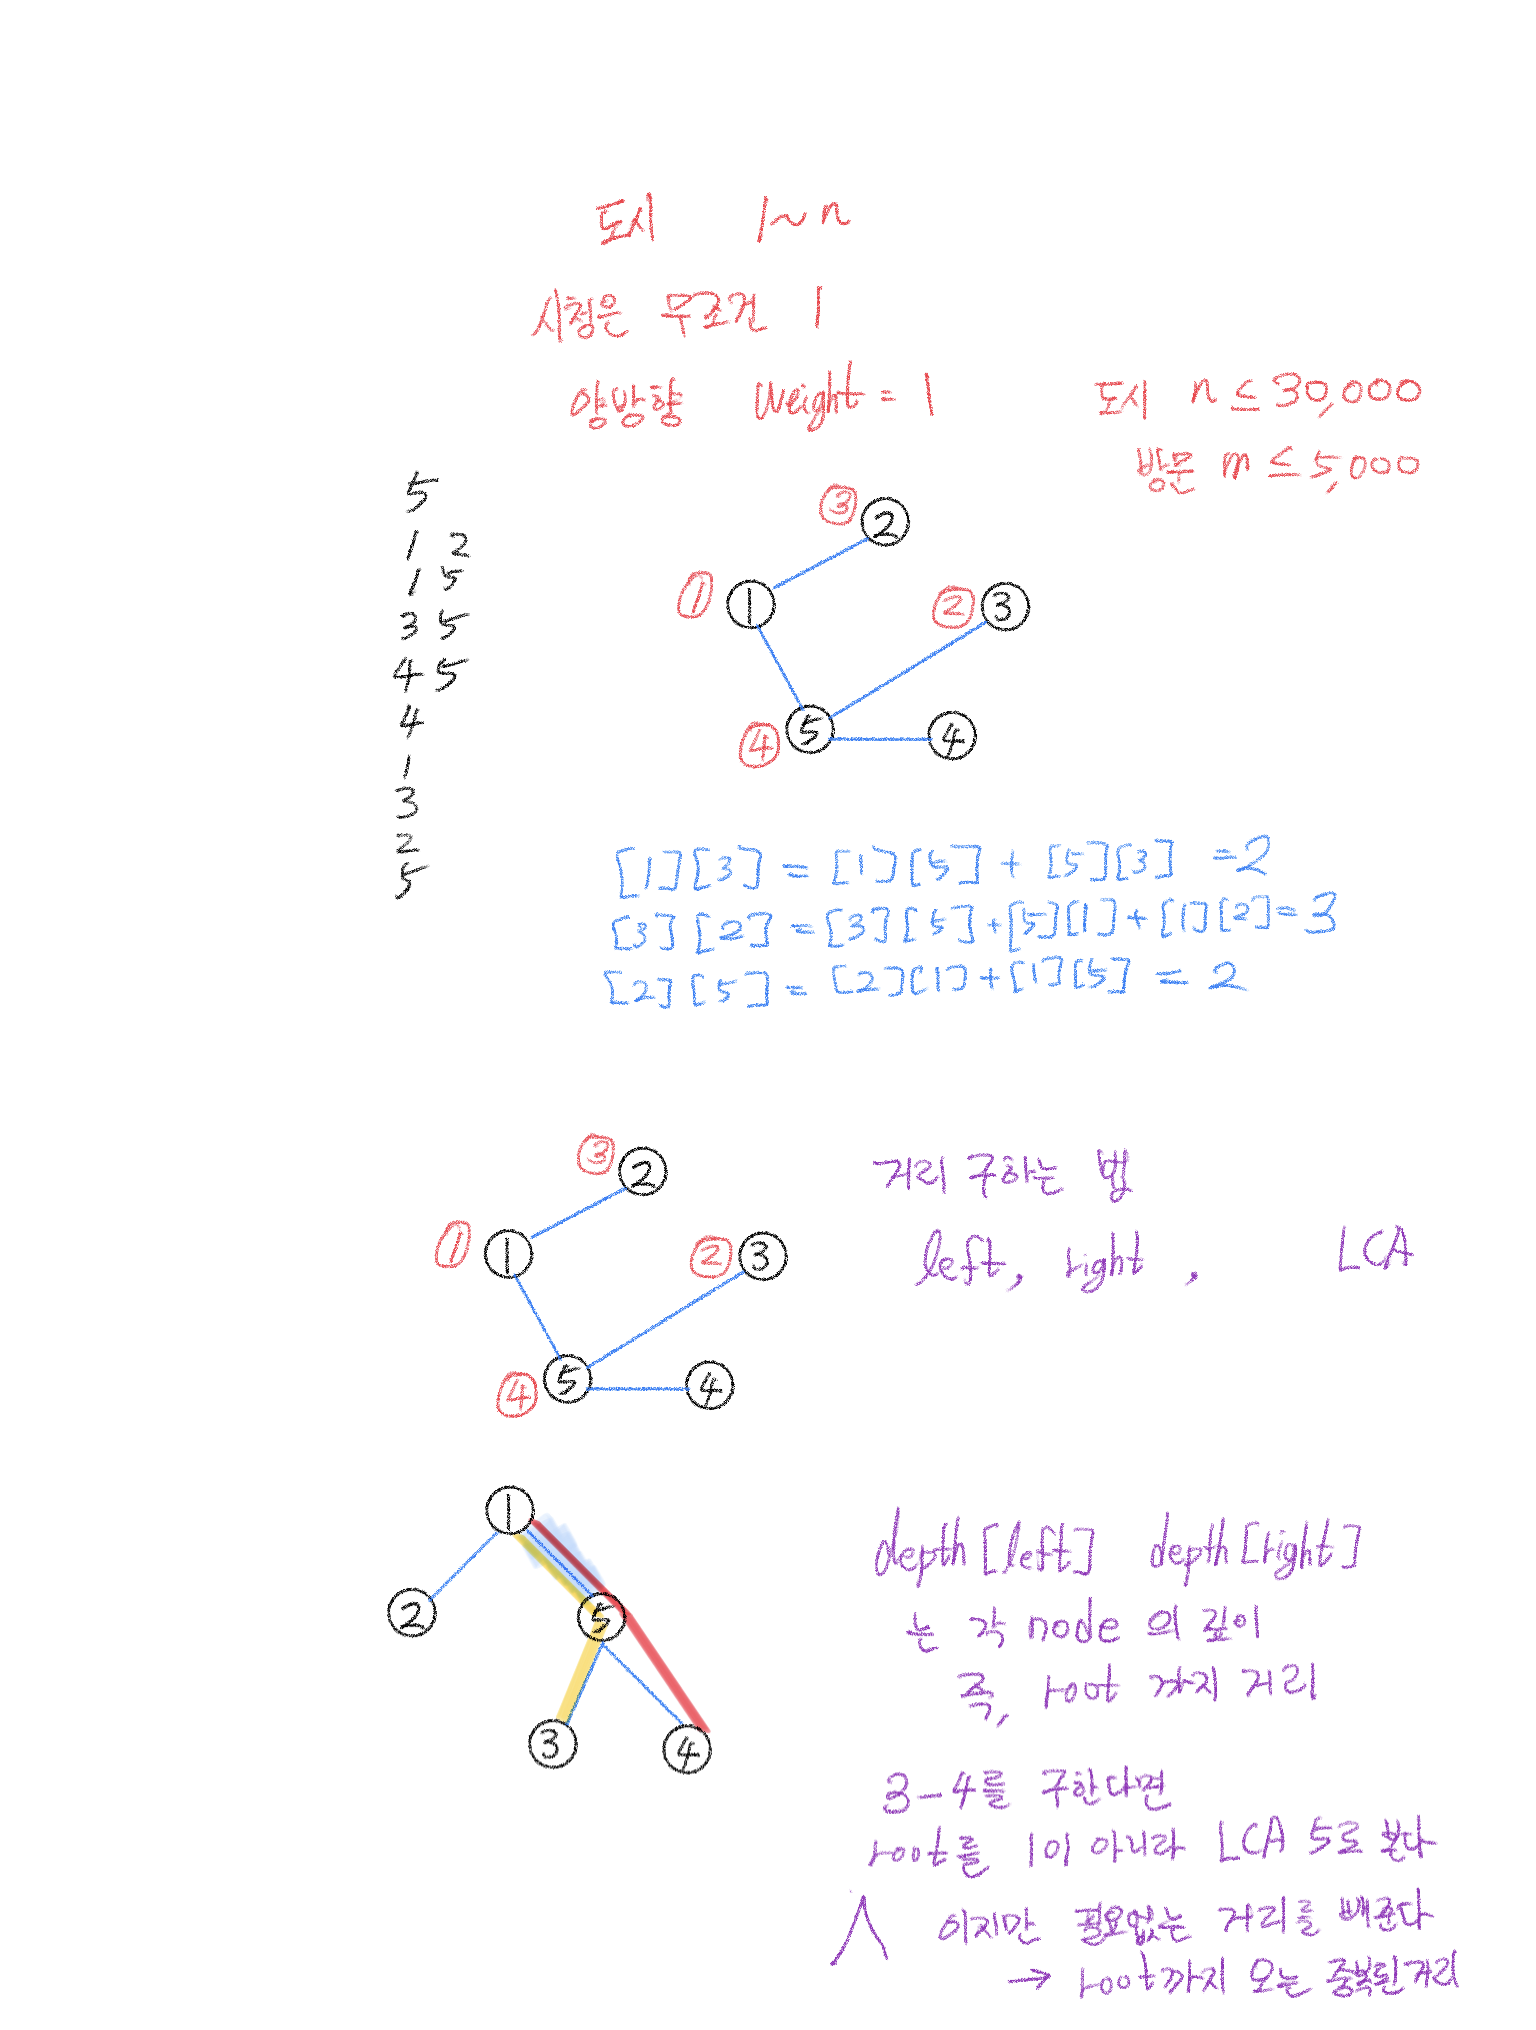 도시 1~n
시청은 무조건 1
양방향 weight = 1
도시 n ≤ 30,000
방문 m ≤ 5,000
5
1 2
1 5
3 5
4 5
4
1
3
2
5
③ 2
① 1
② 3
④ 5 4
[1][3] = [1][5] + [5][3] = 2
[3][2] = [3][5] + [5][1] + [1][2] = 3
[2][5] = [2][1] + [1][5] = 2
③ 2
① 1
② 3
④ 5 4
거리 구하는 법
left, right, LCA
1
2 5
3 4
depth[left] depth[right]
는 각 node 의 깊이
즉, root 까지 거리
3-4를 구한다면
root를 1이 아니라 LCA 5로 본다
이지만 필요없는 거리를 빼준다
→ root까지 오는 중복된 거리